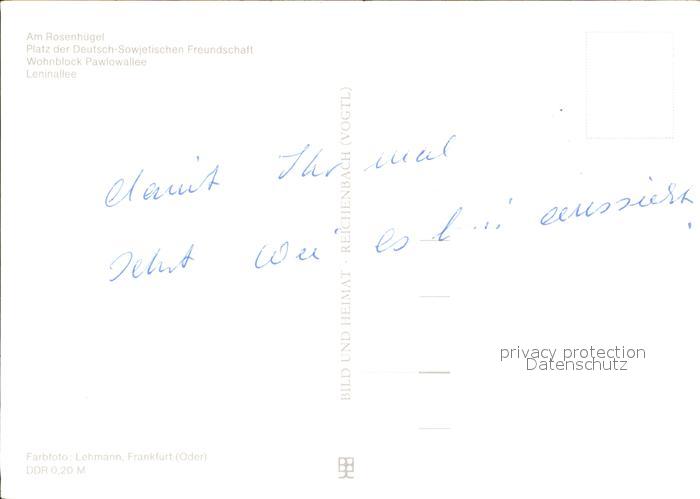 Am Rosenhügel
Platz der Deutsch-Sowjetischen Freundschaft
Wohnblock Pawlowallee
Leninallee
damit Ihr mal
seht wie es b... aussieht.
BILD UND HEIMAT · REICHENBACH (VOGTL)
privacy protection
Datenschutz
Farbfoto: Lehmann, Frankfurt (Oder)
DDR 0,20 M